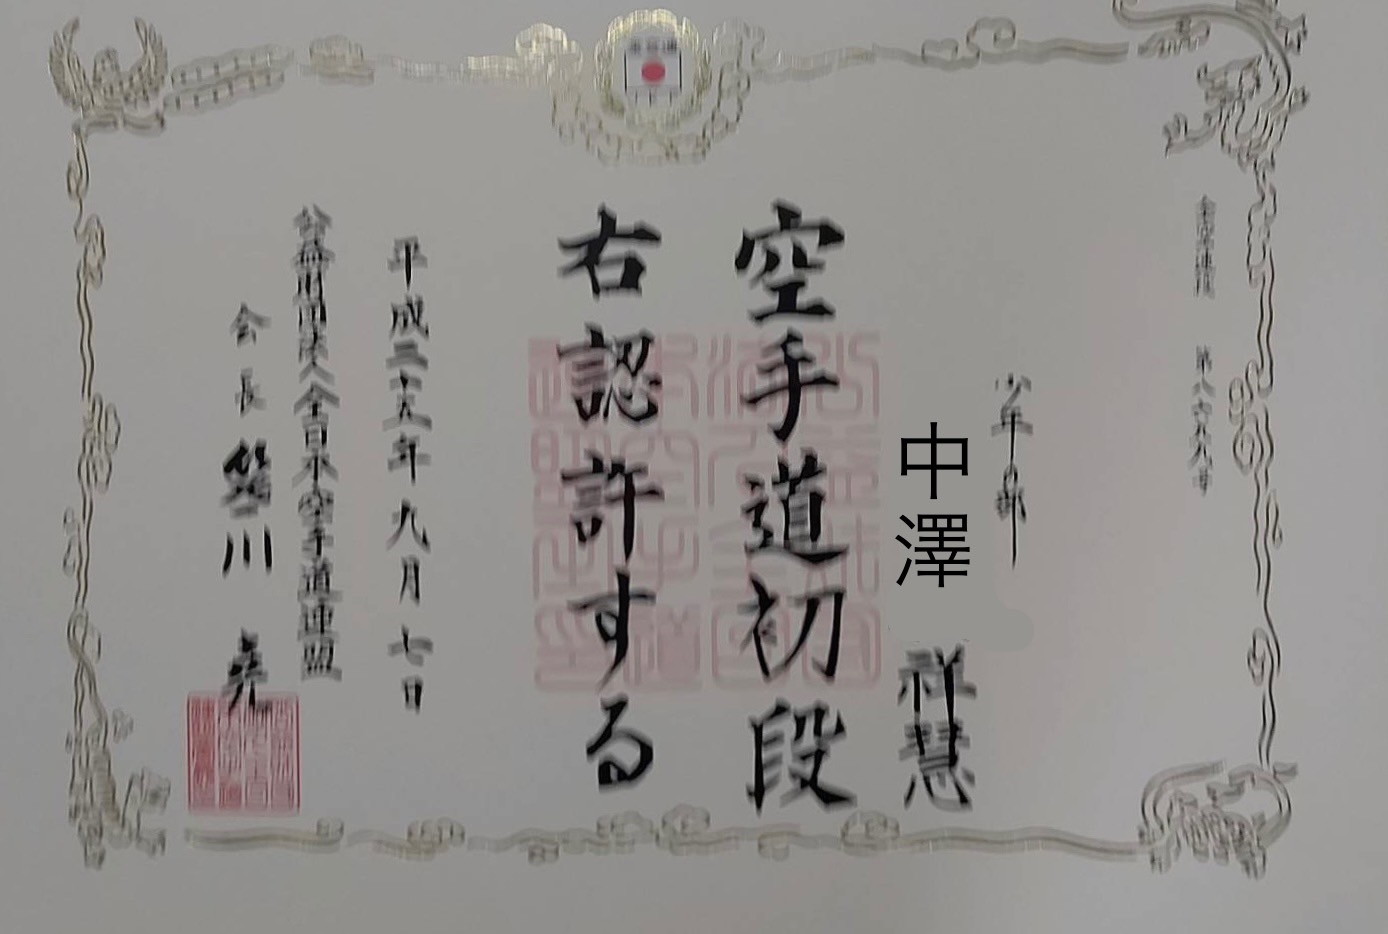 少年の部
中澤 祥慧
空手道初段
右認許する
平成二十五年九月七日
公益財団法人全日本空手道連盟
会長 笹川 堯